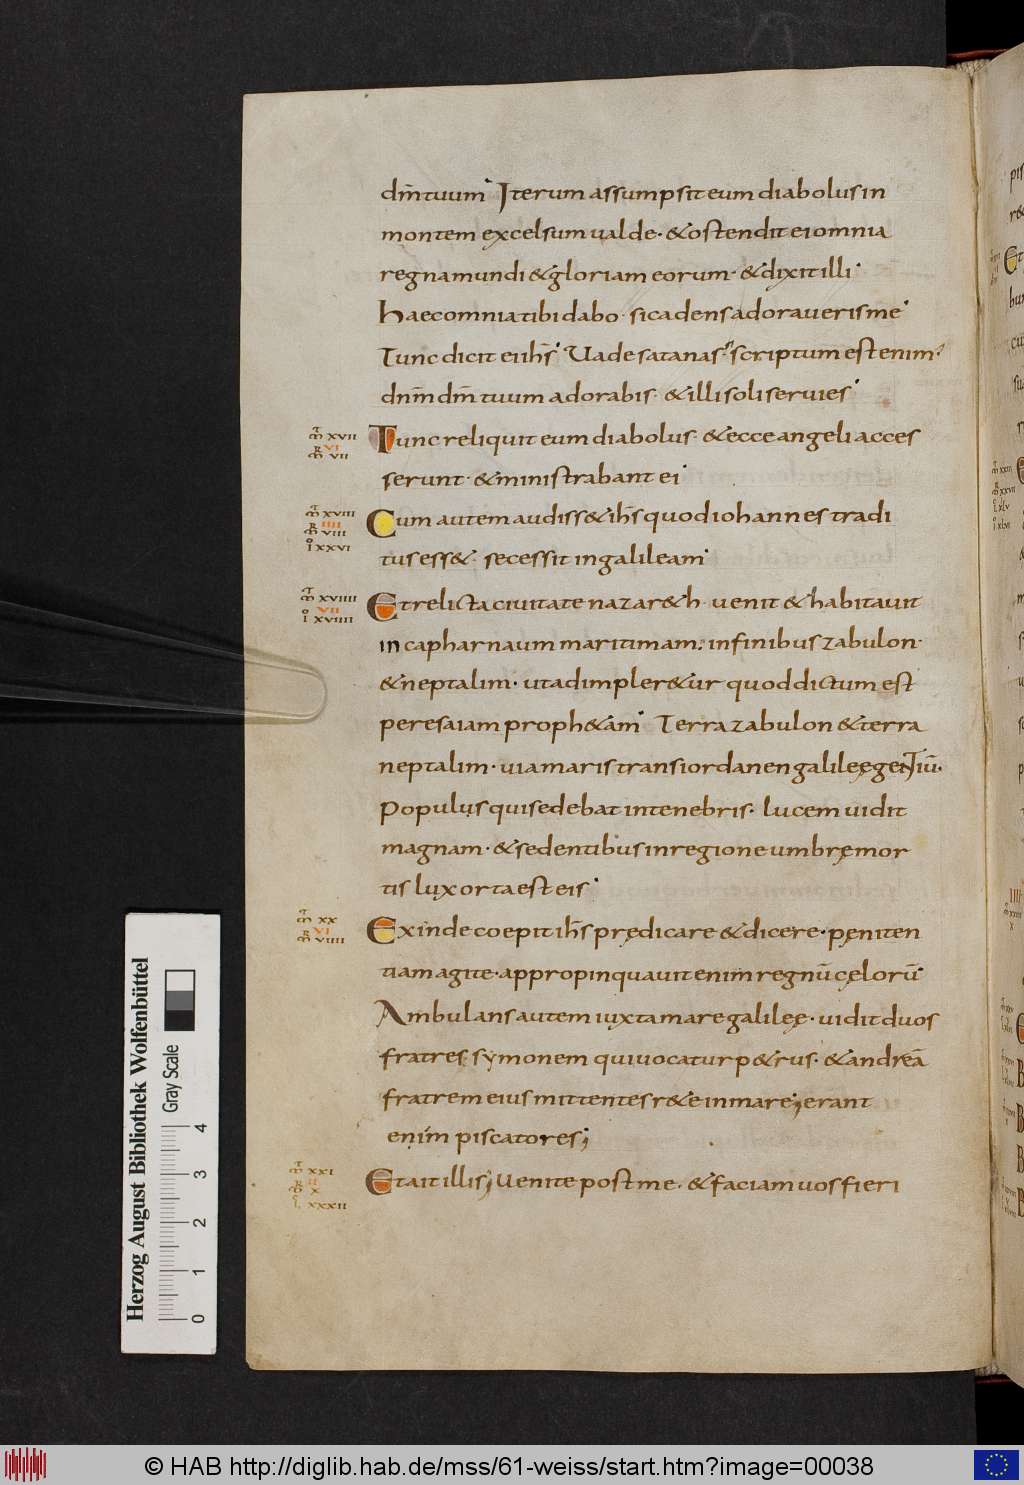 dm̄ tuum Iterum assumpsit eum diabolus in
montem excelsum ualde· & ostendit ei omnia
regna mundi & gloriam eorum· & dixit illi·
haec omnia tibi dabo· si cadens adoraueris me·
Tunc dicit ei ih̄s· Uade satanas· scriptum est enim·
dnm̄ dm̄ tuum adorabis· & illi soli seruies·
mt̄ XVII
VI
mr̄ VII
Tunc reliquit eum diabolus· & ecce angeli acces
serunt· & ministrabant ei·
mt̄ XVIII
IIII
mr̄ VIII
io XXVI
Cum autem audiss& ih̄s quod iohannes tradi
tus ess&· secessit in galileam·
mt̄ XVIIII
VII
io XVIIII
Et relicta ciuitate nazar&h· uenit & habitauit
in capharnaum maritimam· in finibus zabulon·
& neptalim· ut adimpler&ur quod dictum est
per esaiam proph&am· Terra zabulon & terra
neptalim· uia maris trans iordanen galileę gentiū·
populus qui sedebat in tenebris· lucem uidit
magnam· & sedentibus in regione umbrę mor
tis lux orta est eis·
mt̄ XX
VI
mr̄ VIIII
Exinde coepit ih̄s prędicare & dicere· pęniten
tiam agite· appropinquauit enim regnū cęlorū·
Ambulans autem iuxta mare galileę· uidit duos
fratres symonem qui uocatur p&rus· & andreā
fratrem eius mittentes r&e in mare; erant
enim piscatores;
mt̄ XXI
II
mr̄ X
l XXXII
Et ait illis; Uenite post me· & faciam uos fieri
Herzog August Bibliothek Wolfenbüttel
Gray Scale
0 1 2 3 4
© HAB http://diglib.hab.de/mss/61-weiss/start.htm?image=00038